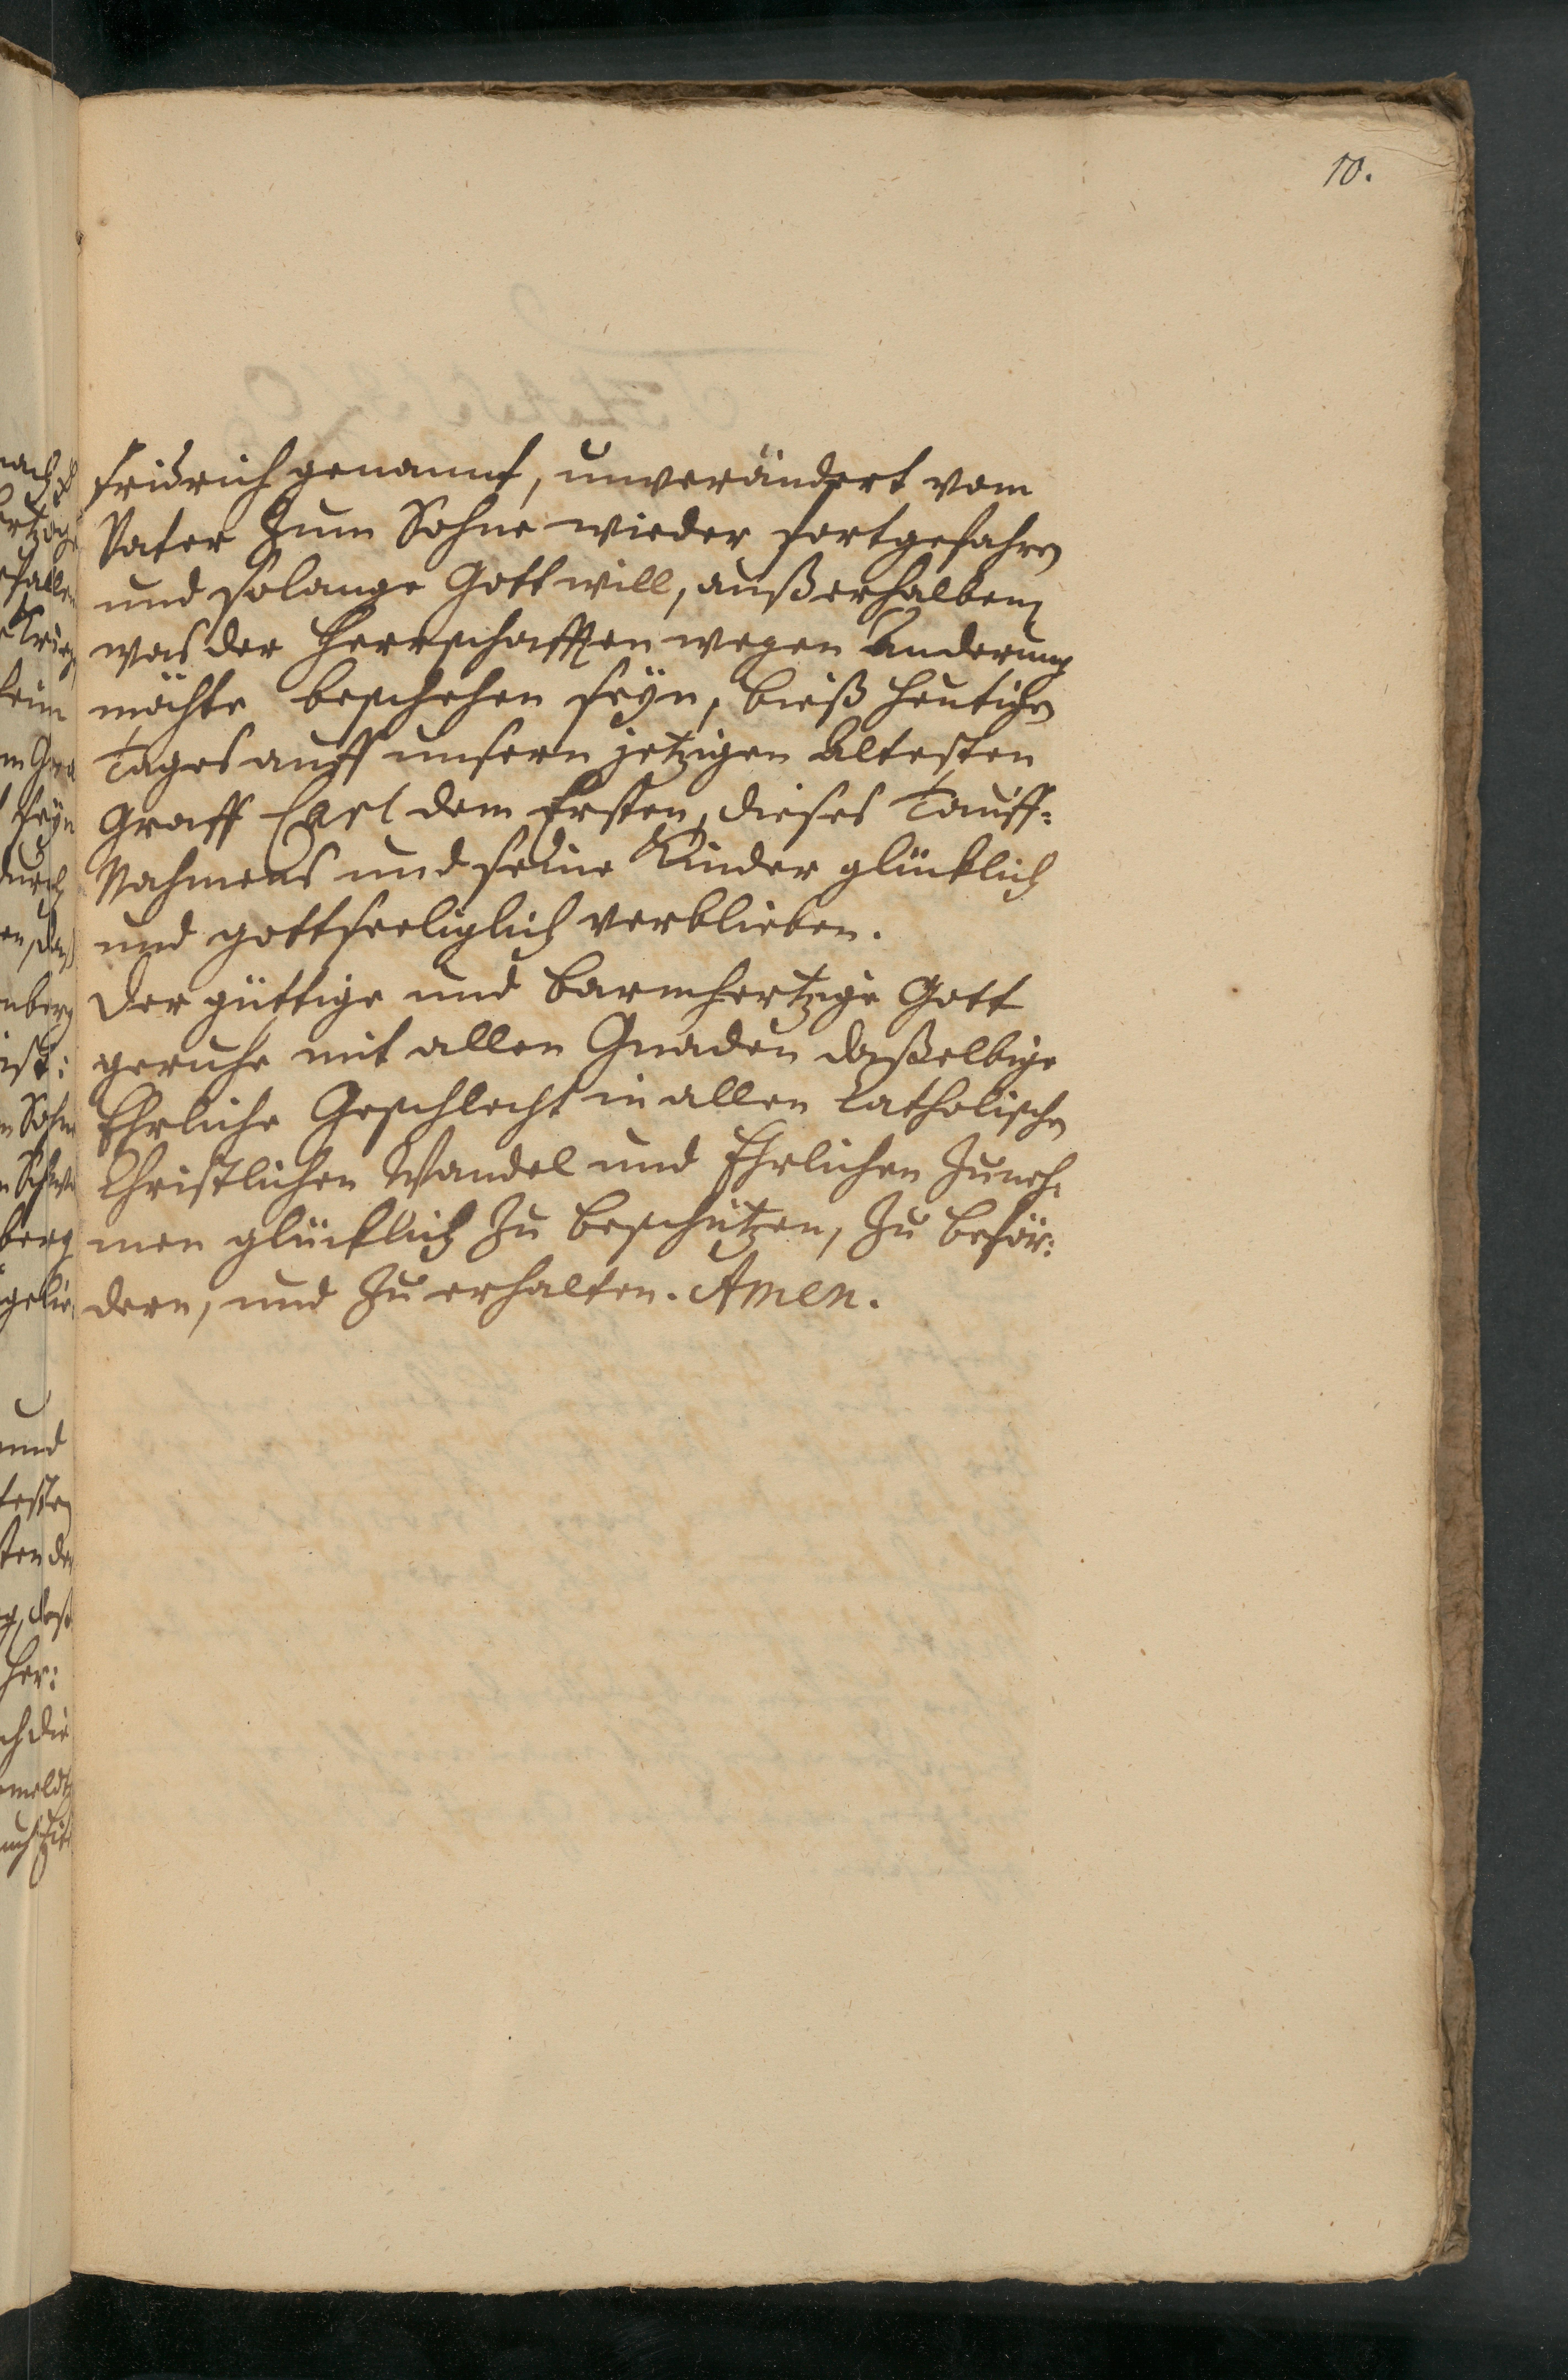 10.
Fridrich genannt, unverändert vom
Vater Zum Sohne wieder fortgefahren
und solange Gott will, außerhalben
was der Herrschafften wegen Änderung
möchte beschehen seÿn, bieß heutigen
Tages auff unsern jetzigen Ältesten
Graff Carl dem Ersten, dieses Tauff-
Nahmens und seine Kinder glücklich
und gottseeliglich verblieben.
Der güttige und barmhertzige Gott
geruhe mit allen Gnaden daßelbige
Ehrliche Geschlecht in allen Catholischen
Christlichen Wandel und Ehrlichen Zuneh-
men glücklich Zu beschützen, Zu beför:
dern, und Zu erhalten. Amen.